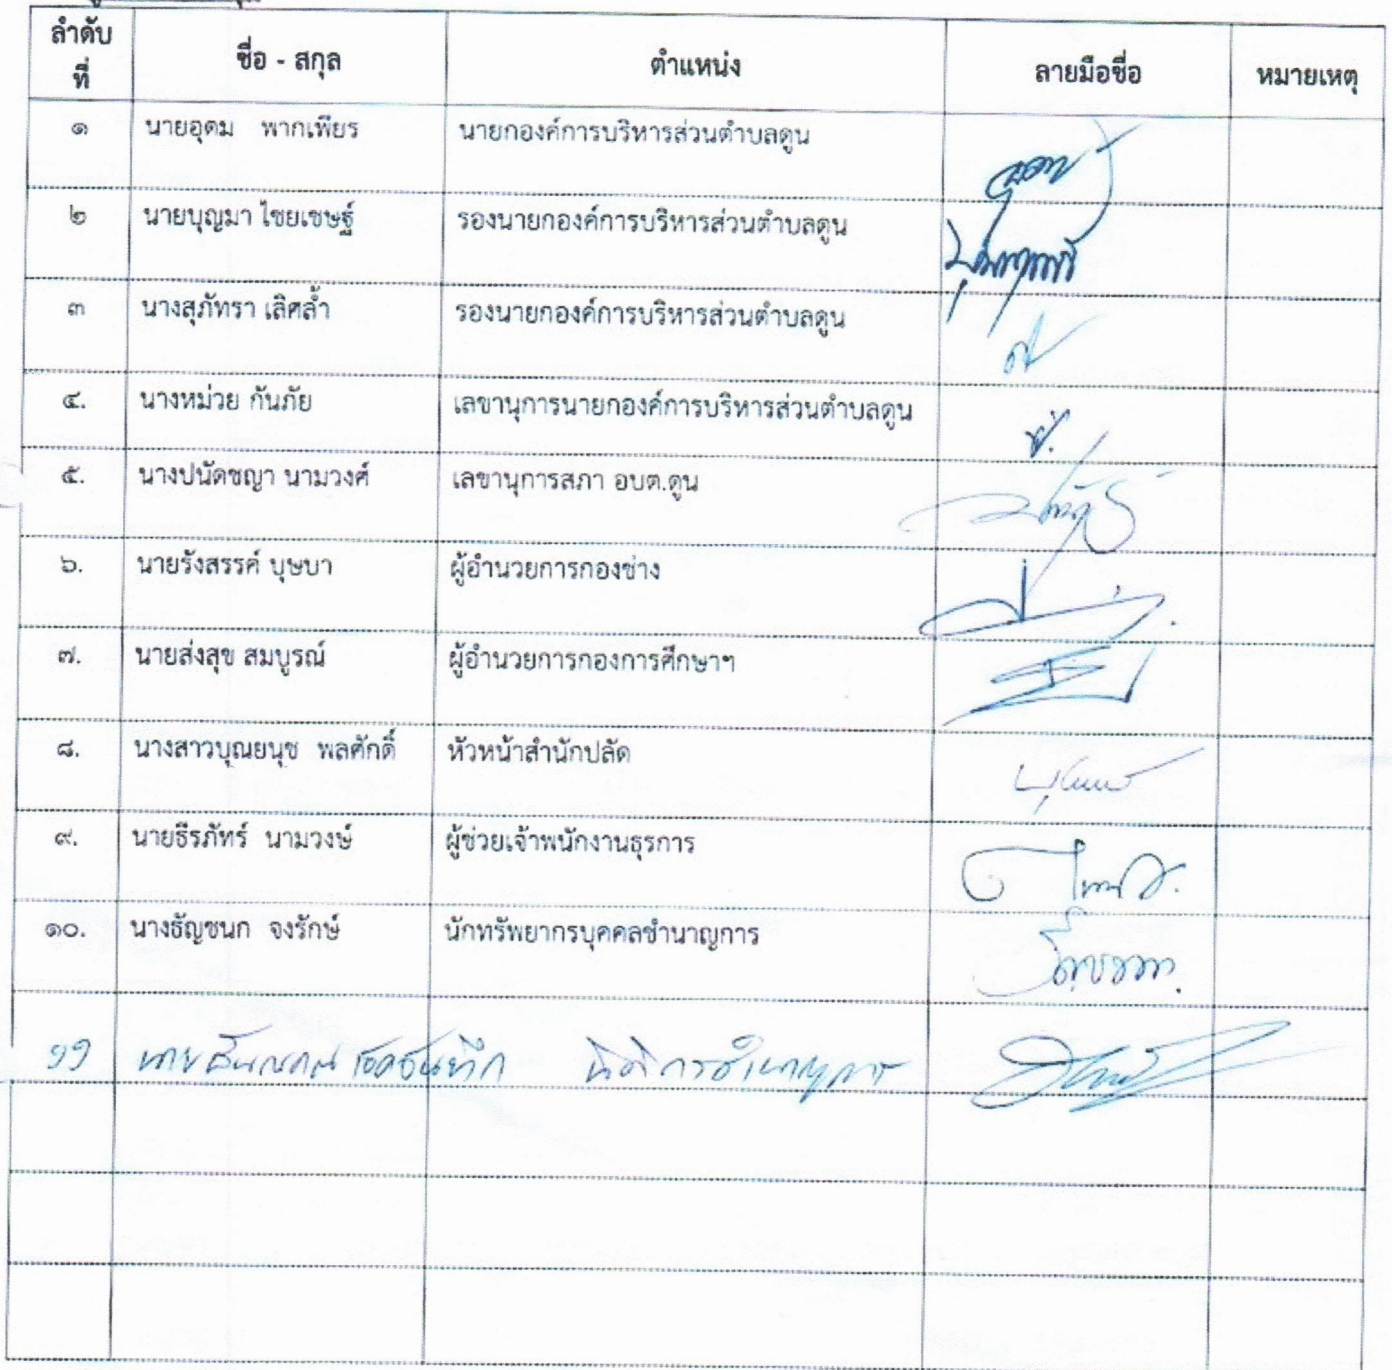 ลำดับที่ ชื่อ - สกุล ตำแหน่ง ลายมือชื่อ หมายเหตุ
๑ นายอุดม พากเพียร นายกองค์การบริหารส่วนตำบลดูน
๒ นายบุญมา ไชยเชษฐ์ รองนายกองค์การบริหารส่วนตำบลดูน
๓ นางสุภัทรา เลิศล้ำ รองนายกองค์การบริหารส่วนตำบลดูน
๔. นางหม่วย กันภัย เลขานุการนายกองค์การบริหารส่วนตำบลดูน
๕. นางปนัดชญา นามวงศ์ เลขานุการสภา อบต.ดูน
๖. นายรังสรรค์ บุษบา ผู้อำนวยการกองช่าง
๗. นายส่งสุข สมบูรณ์ ผู้อำนวยการกองการศึกษาฯ
๘. นางสาวบุณยนุช พลศักดิ์ หัวหน้าสำนักปลัด
๙. นายธีรภัทร์ นามวงษ์ ผู้ช่วยเจ้าพนักงานธุรการ
๑๐. นางธัญชนก จงรักษ์ นักทรัพยากรบุคคลชำนาญการ
๑๑ นาย นิติกรชำนาญการ